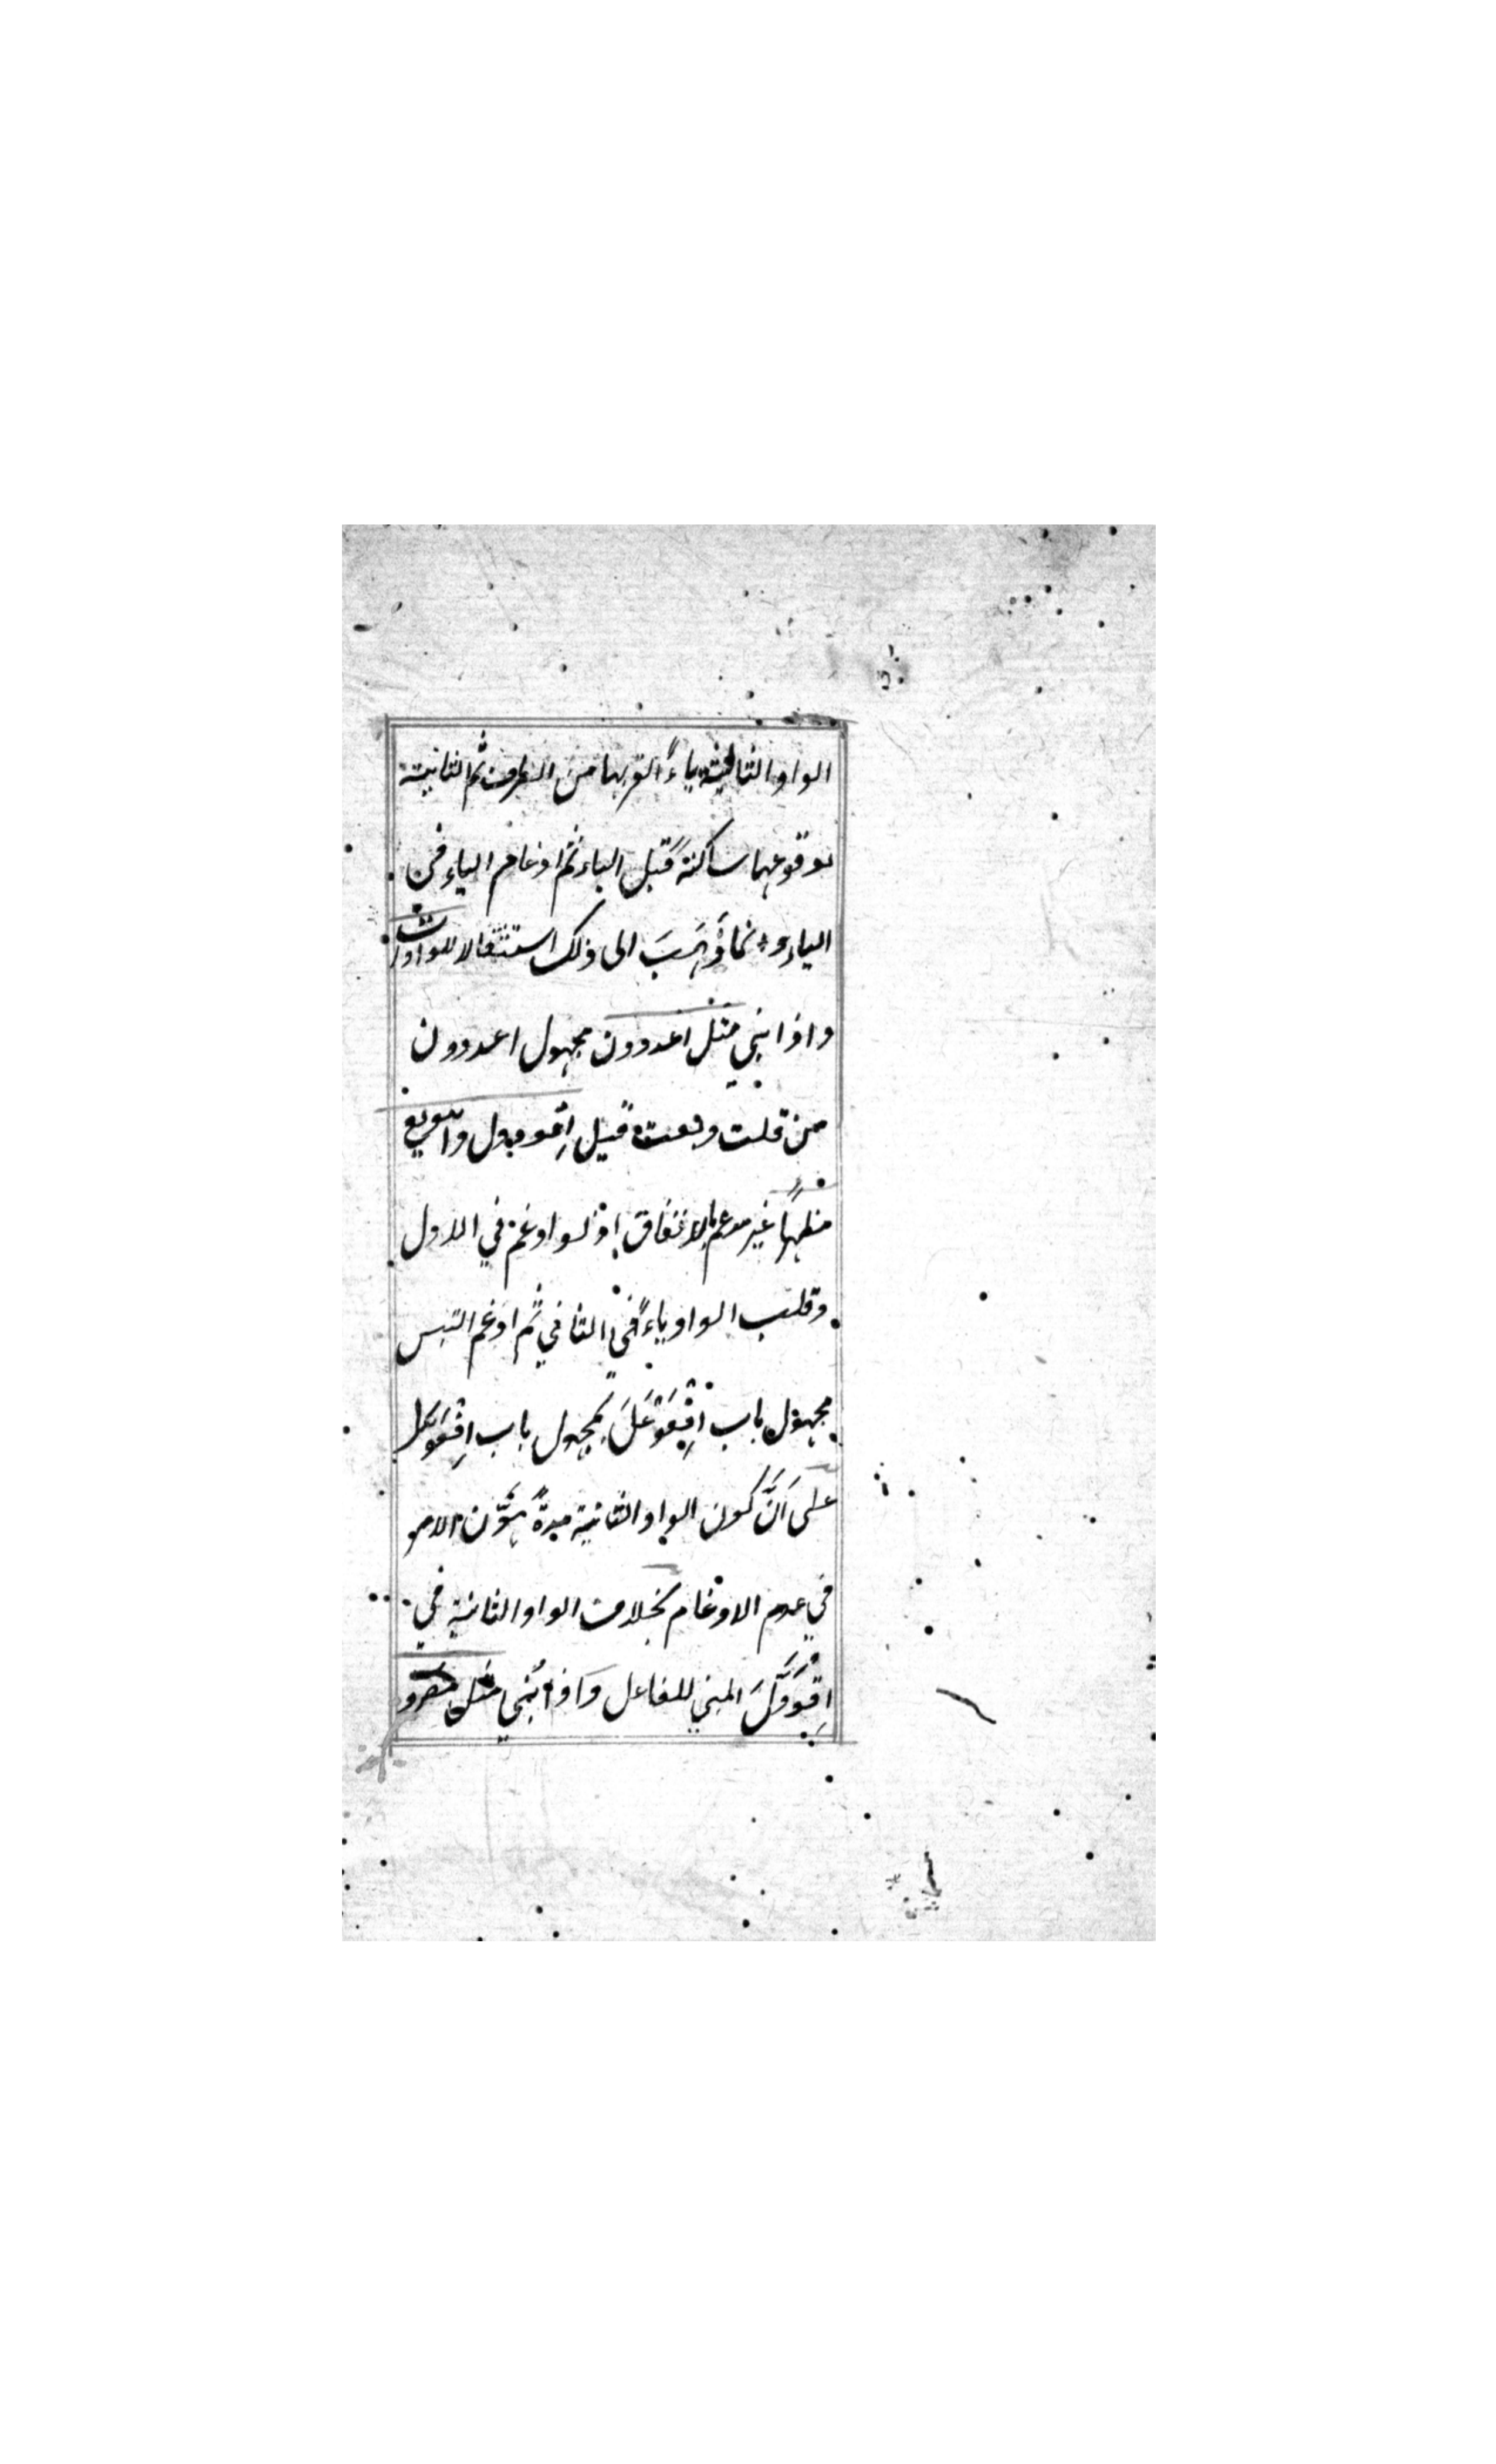 الواو الثالثة ياءً لقربها من الطرف ثم الثانية
لوقوعها ساكنةً قبل الياء ثم ادغام الياء في
الياء وانما ذَهَبَ الى ذلك استثقالا للواوات
واذا بني مثل اغدودن مجهول اغدودن
من قلت وبعت قيل اُقووول وابيويع
مظهرًا غير مدغم بالاتفاق اذ لو ادغم في الاول
وقلب الواو ياءً في الثاني ثم ادغم التبس
مجهول باب اِفْعَوْعَلَ بمجهول باب اِفْعَوَّلَ
على اَنَّ كون الواو الثانية مدةً يهَوِّن الامر
في عدم الادغام بخلاف الواو الثانية في
اِقْوَوَّلَ المبني للفاعل وَاذا بُني مثل مضرو